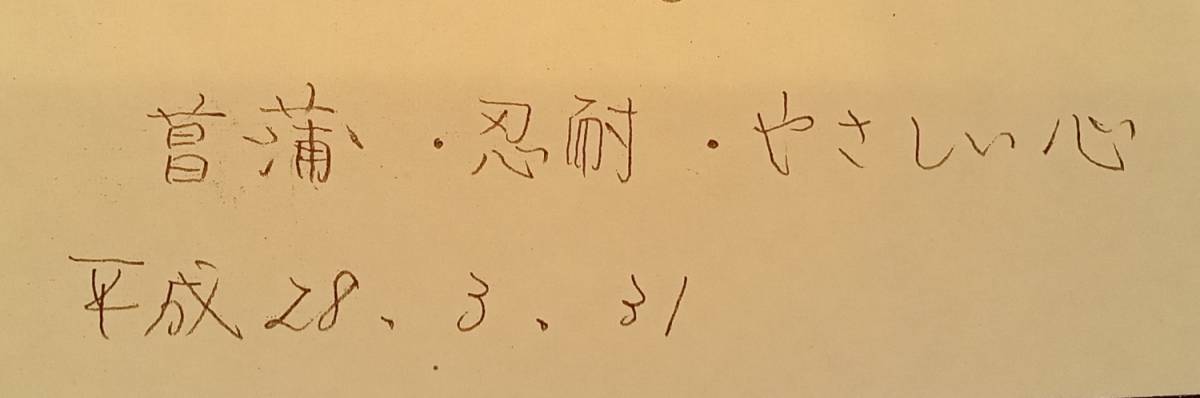 菖蒲・忍耐・やさしい心
平成28、3、31